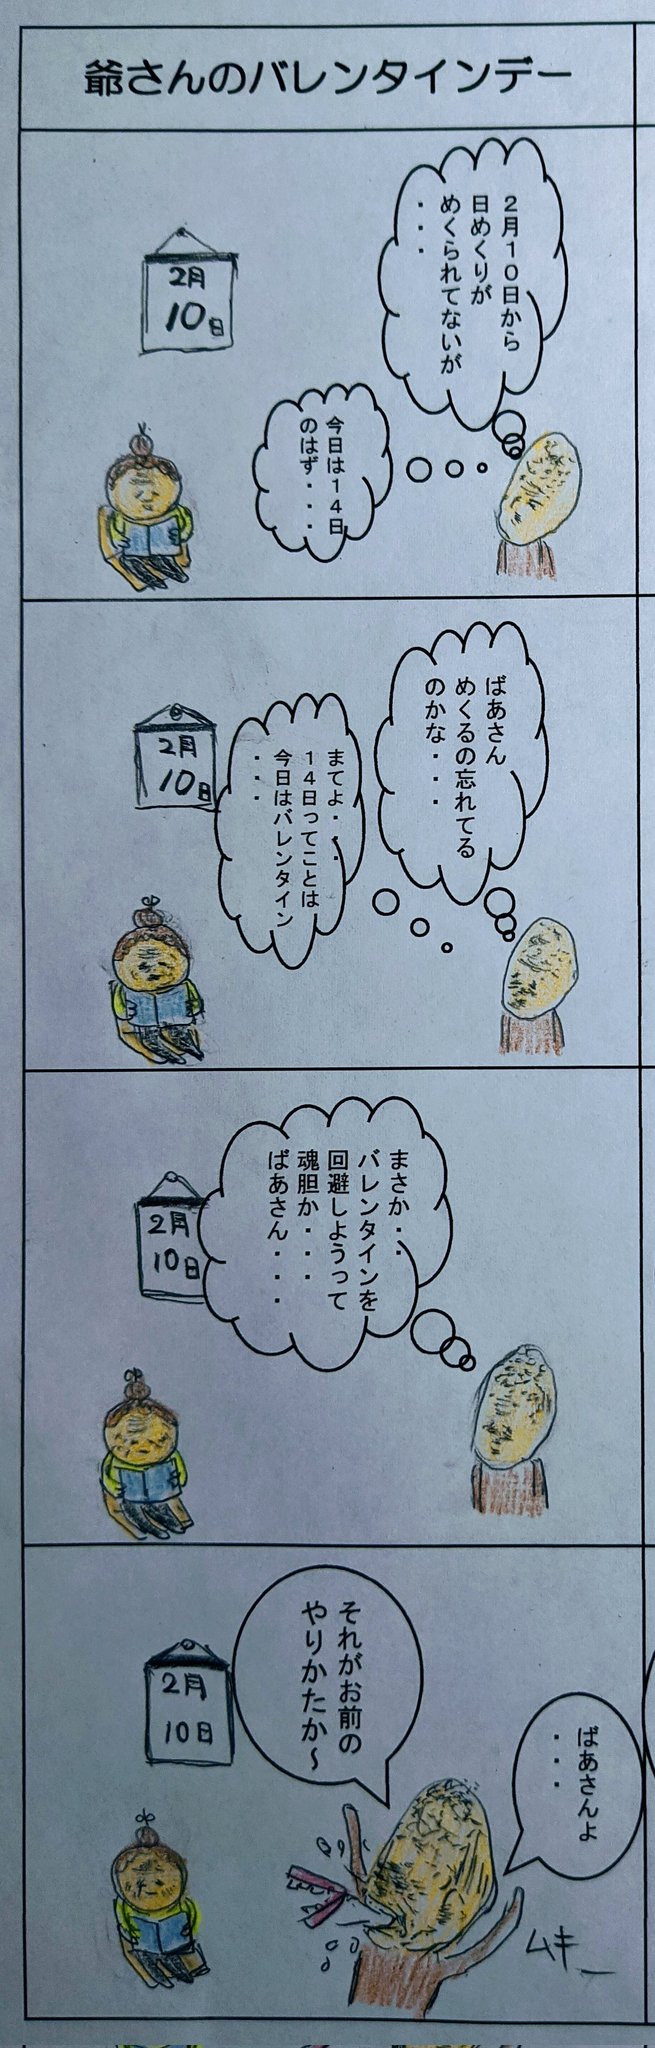 爺さんのバレンタインデー
2月10日から
日めくりが
めくられてないが
・・・
今日は14日
のはず・・・
2月
10日
ばあさん
めくるの忘れてる
のかな・・・
まてよ・・・
14日ってことは
今日はバレンタイン
・・・
2月
10日
まさか・・
バレンタインを
回避しようって
魂胆か・・・
ばあさん・・・
2月
10日
ばあさんよ
・・・
それがお前の
やりかたか～
2月
10日
ムキー